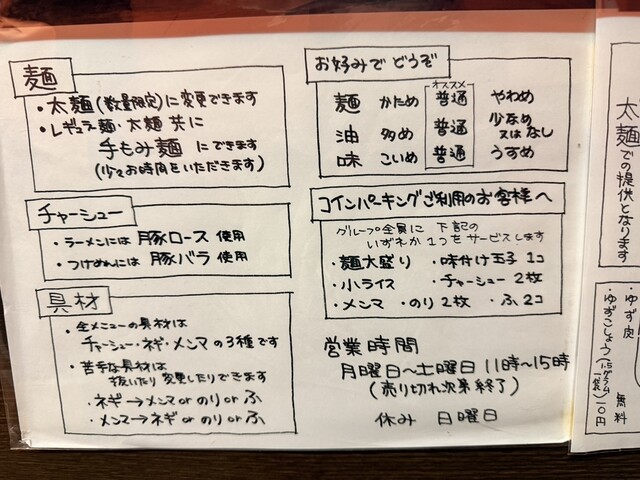 麺
・太麺(数量限定)に変更できます
・レギュラー麺・太麺 共に
手もみ麺 にできます
(少々お時間をいただきます)
チャーシュー
・ラーメンには 豚ロース 使用
・つけめんには 豚バラ 使用
具材
・全メニューの具材は
チャーシュー・ネギ・メンマ の3種です
・苦手な具材は
抜いたり 変更したりできます
・ネギ→メンマ or のり or ふ
・メンマ→ネギ or のり or ふ
お好みで どうぞ
オススメ
麺 かため 普通 やわめ
油 多め 普通 少なめ
又は なし
味 こいめ 普通 うすめ
コインパーキングご利用のお客様へ
グループ全員に 下記の
いずれか 1つを サービスします
・麺大盛り ・味付け玉子 1コ
・小ライス ・チャーシュー 2枚
・メンマ ・のり 2枚 ・ふ 2コ
営業時間
月曜日〜土曜日 11時〜15時
(売り切れ次第終了)
休み 日曜日
太麺での提供となります
・ゆず皮 無料
・ゆずこしょう(1.5グラム1袋)10円